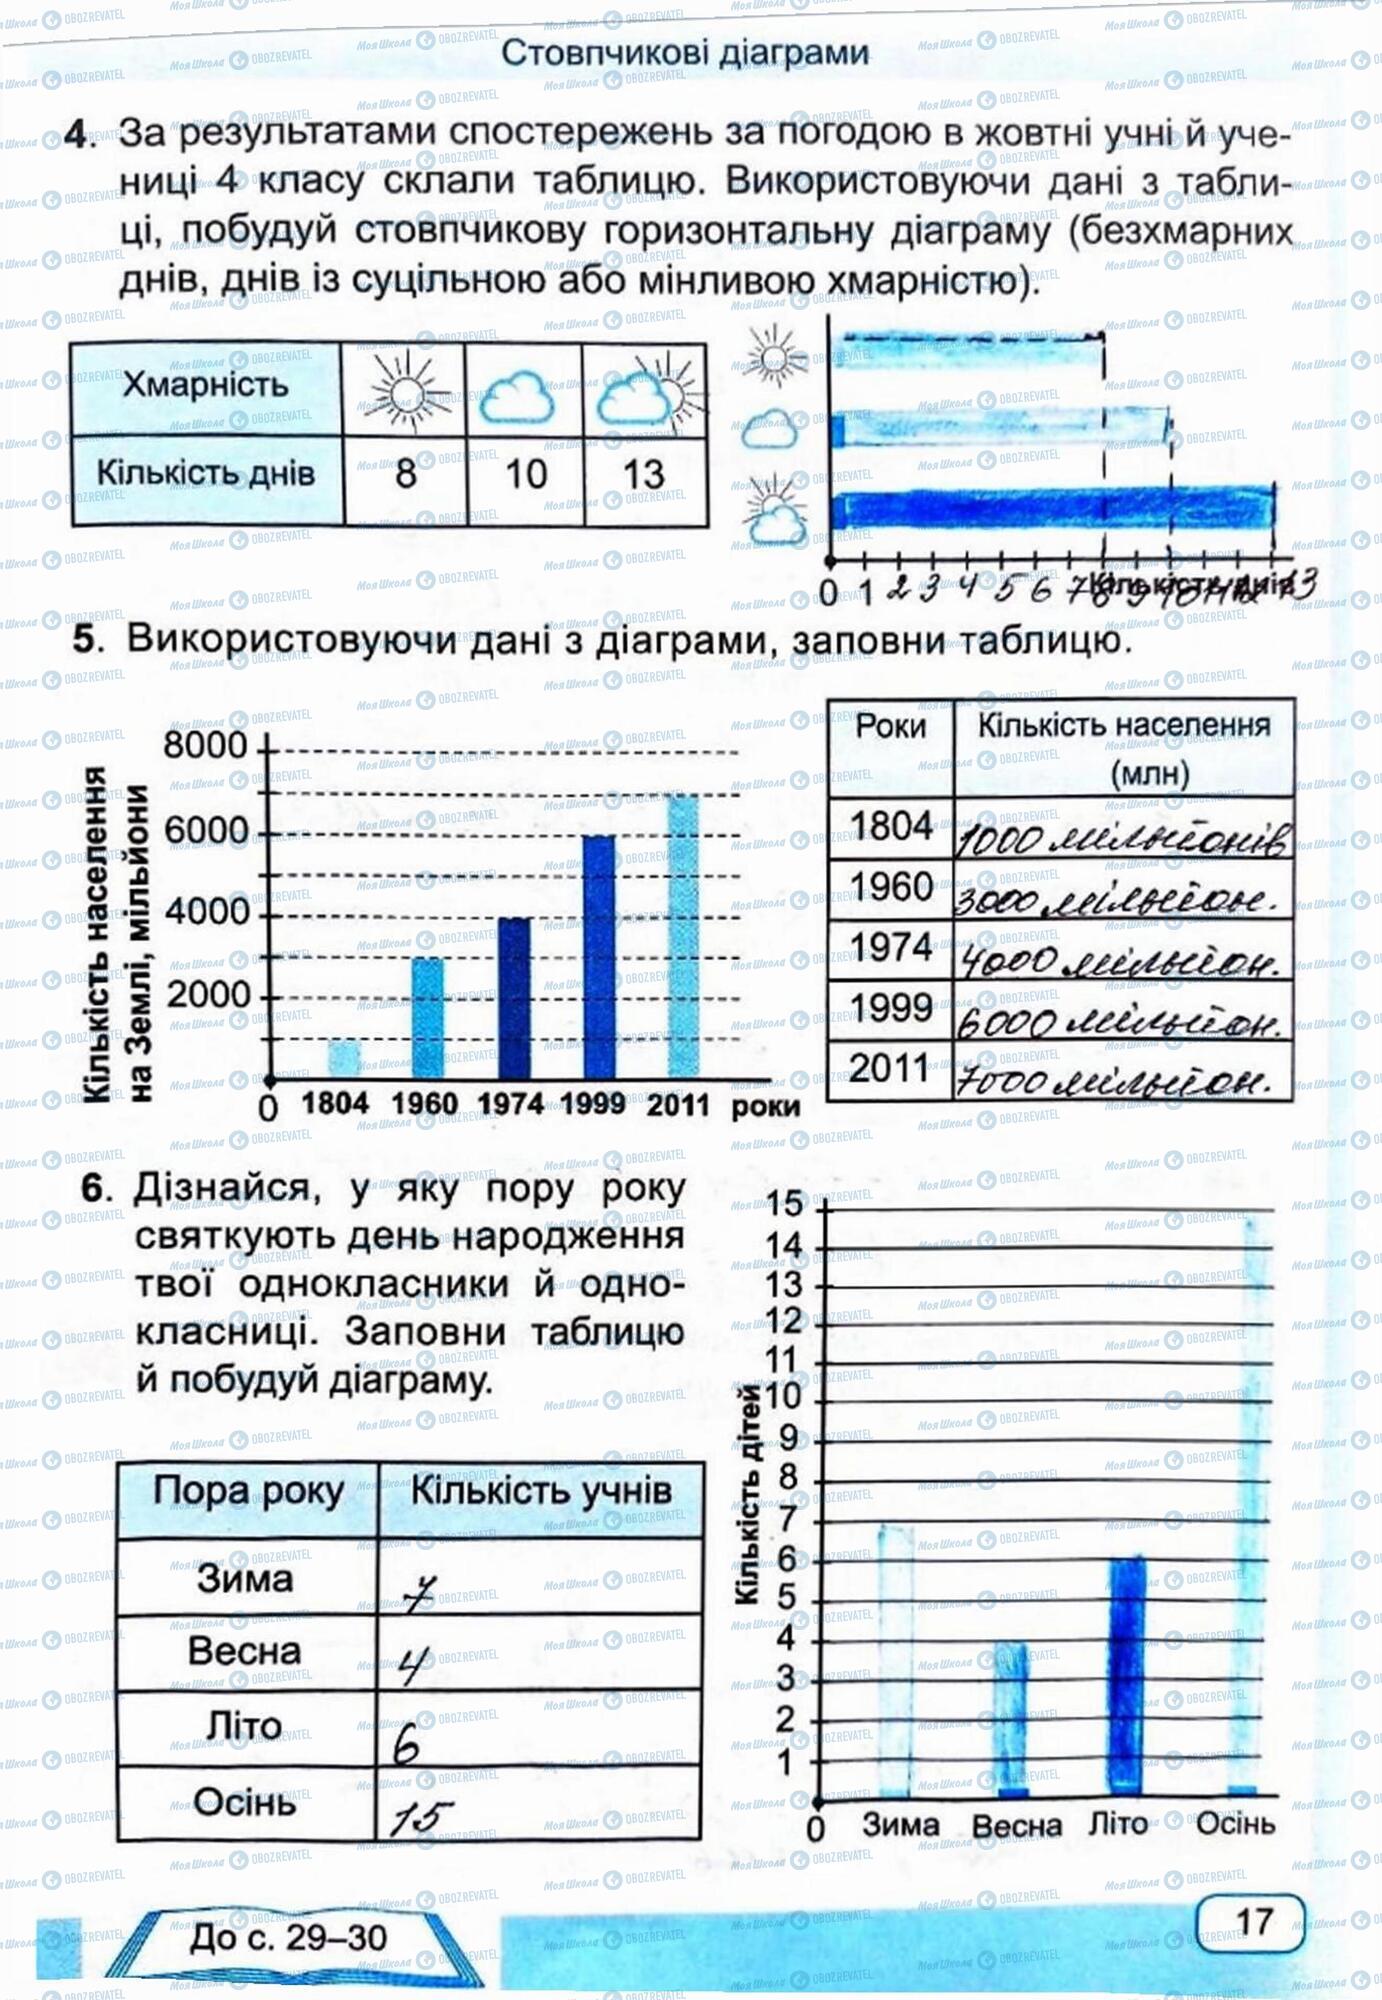 Стовпчикові діаграми
4. За результатами спостережень за погодою в жовтні учні й уче-
ниці 4 класу склали таблицю. Використовуючи дані з табли-
ці, побудуй стовпчикову горизонтальну діаграму (безхмарних
днів, днів із суцільною або мінливою хмарністю).
Хмарність
Кількість днів 8 10 13
0 1 2 3 4 5 6 7 8 9 10 11 12 13
Кількість днів
5. Використовуючи дані з діаграми, заповни таблицю.
Кількість населення
на Землі, мільйони
8000
6000
4000
2000
0 1804 1960 1974 1999 2011 роки
Роки Кількість населення
(млн)
1804 1000 мільйонів
1960 3000 мільйон.
1974 4000 мільйон.
1999 6000 мільйон.
2011 7000 мільйон.
6. Дізнайся, у яку пору року
святкують день народження
твої однокласники й одно-
класниці. Заповни таблицю
й побудуй діаграму.
Пора року Кількість учнів
Зима 7
Весна 4
Літо 6
Осінь 15
Кількість дітей
15
14
13
12
11
10
9
8
7
6
5
4
3
2
1
0 Зима Весна Літо Осінь
До с. 29–30
17
Моя Школа OBOZREVATEL